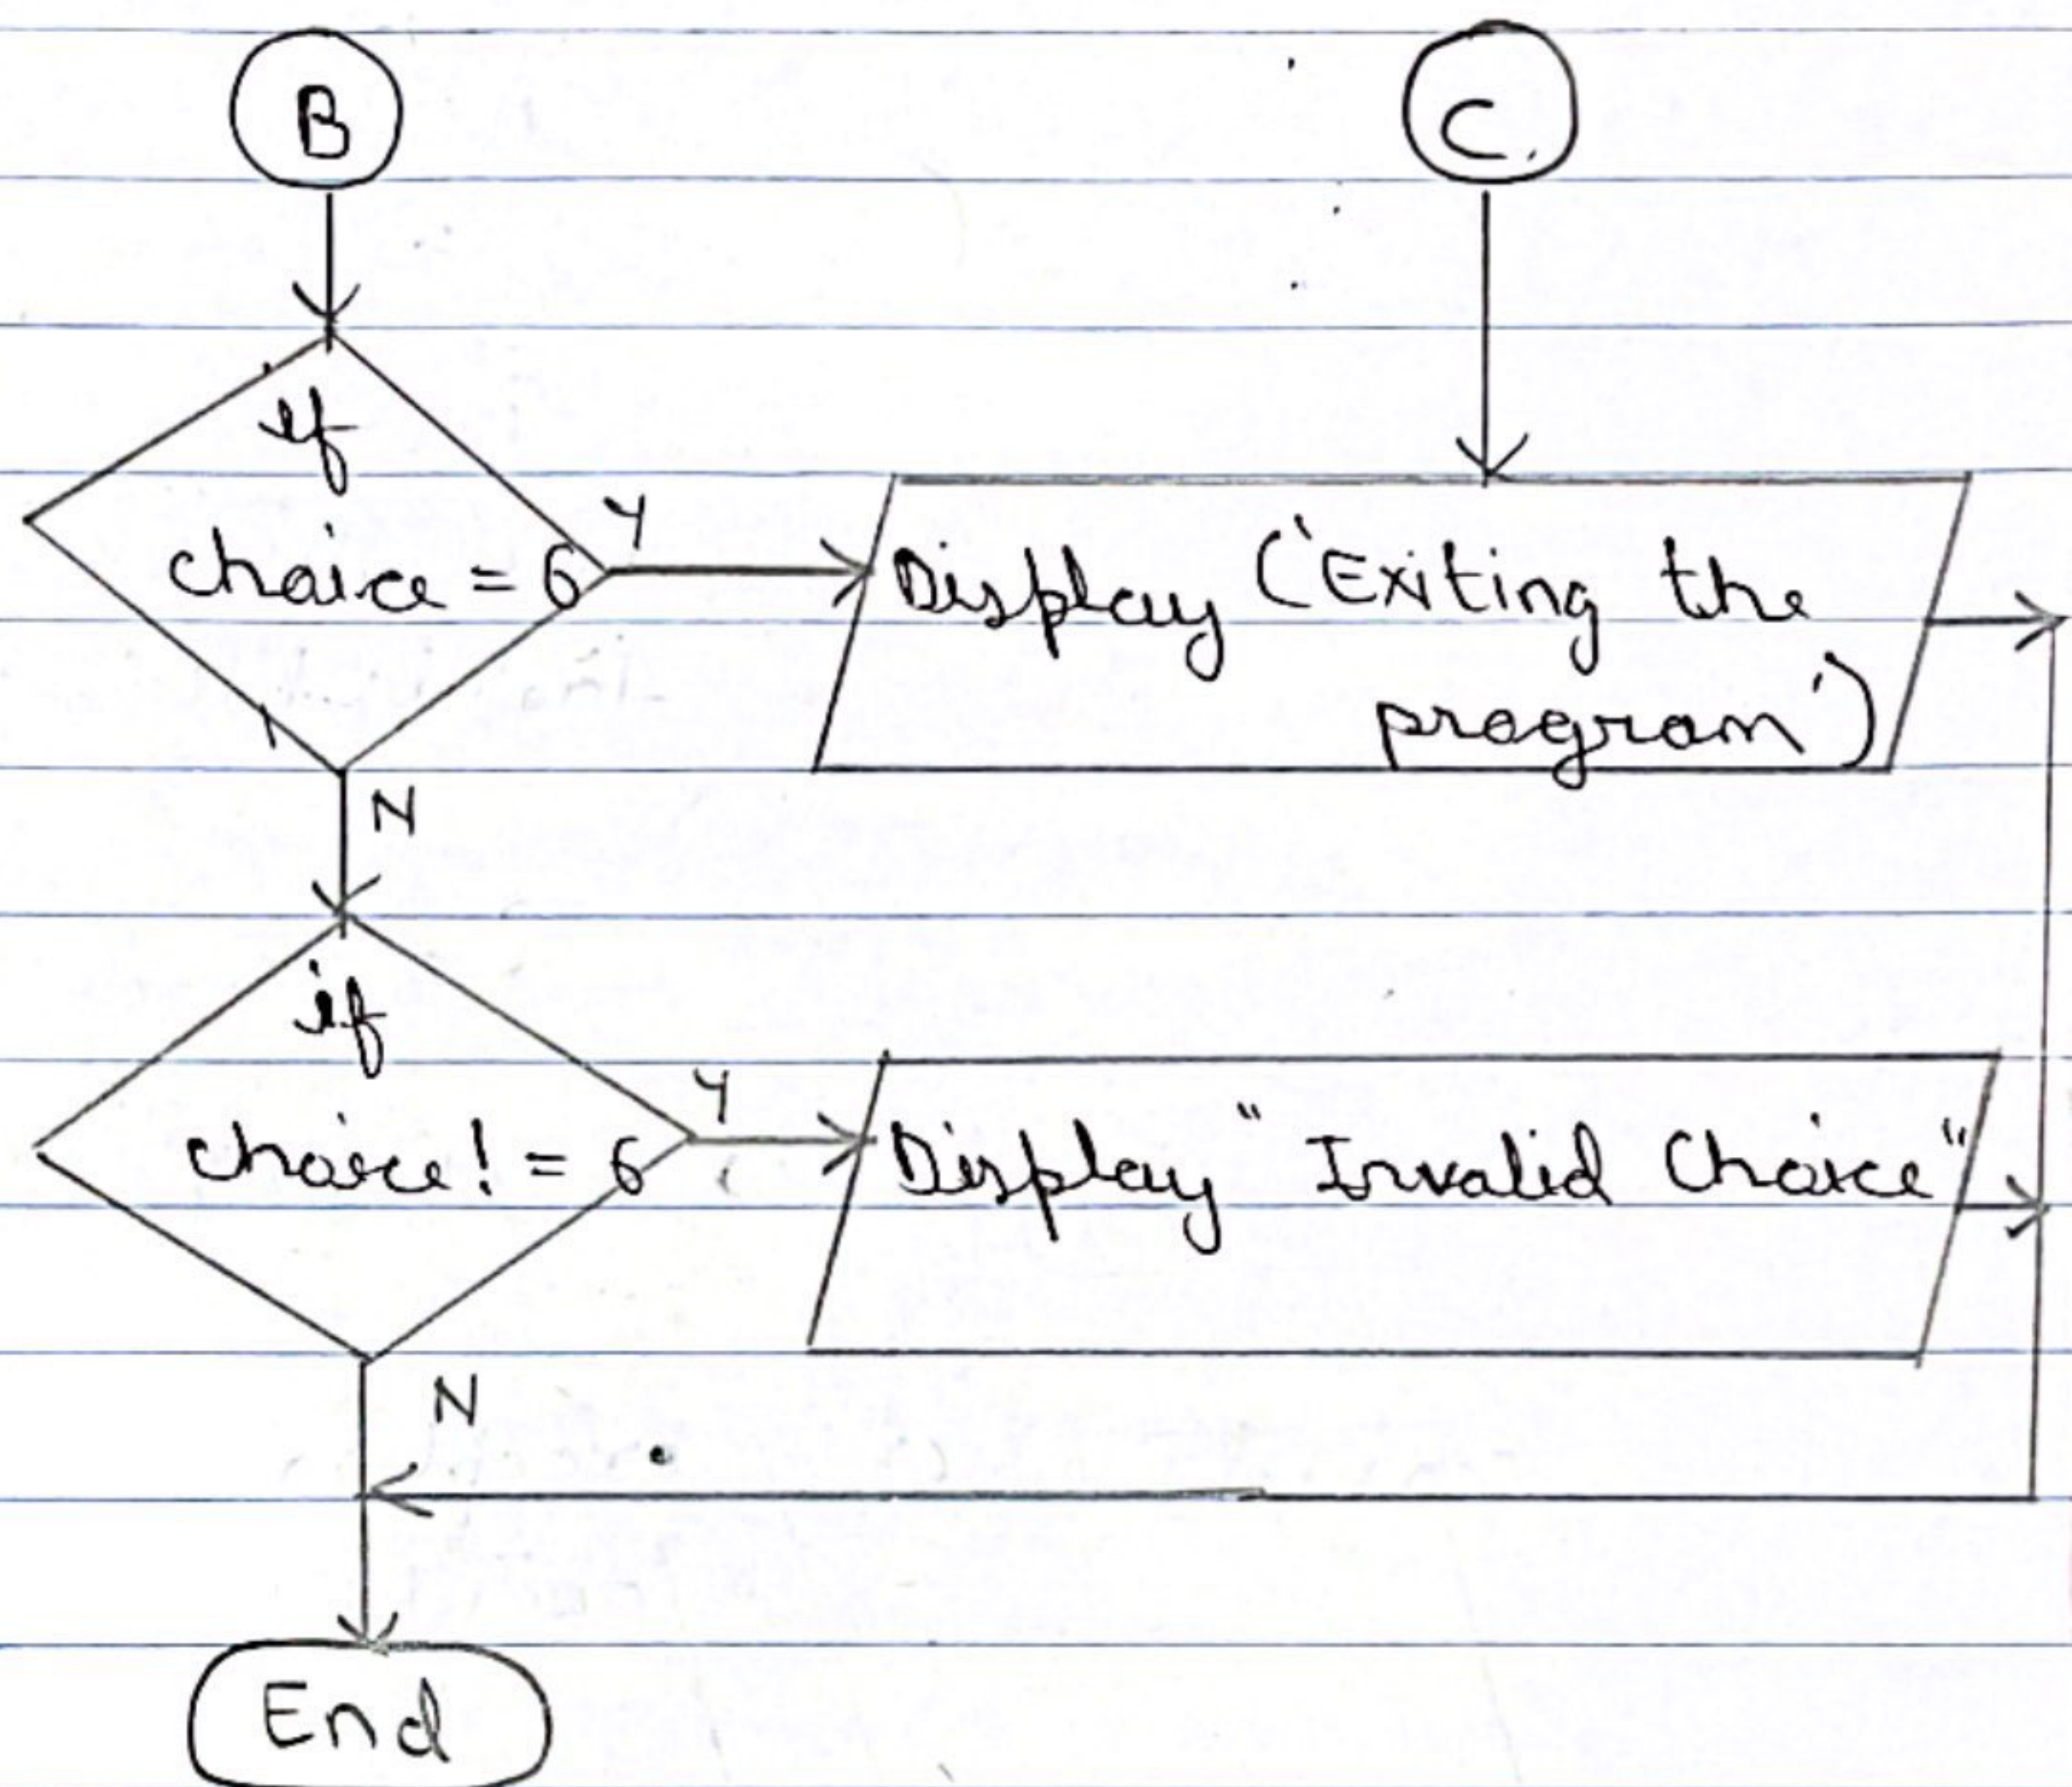 B
C
if
choice = 6
Y
Display ('Exiting the
program')
N
if
choice! = 6
Y
Display "Invalid Choice"
N
End